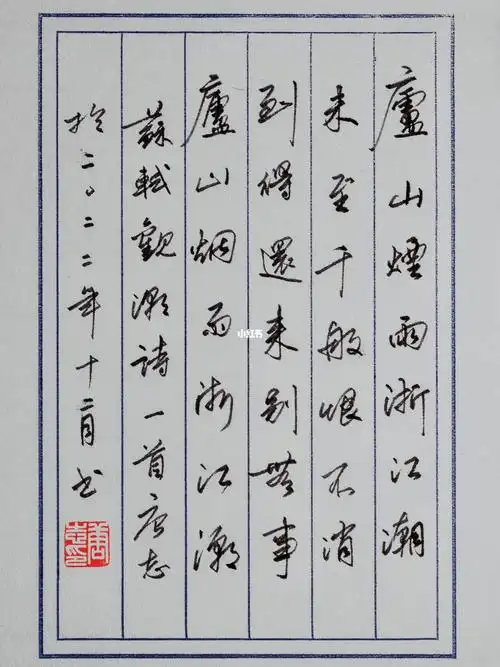 廬山煙雨浙江潮
未至千般恨不消
到得還来别無事
廬山烟雨浙江潮
蘇軾觀潮詩一首唐志
於二〇二二年十二月书
小红书